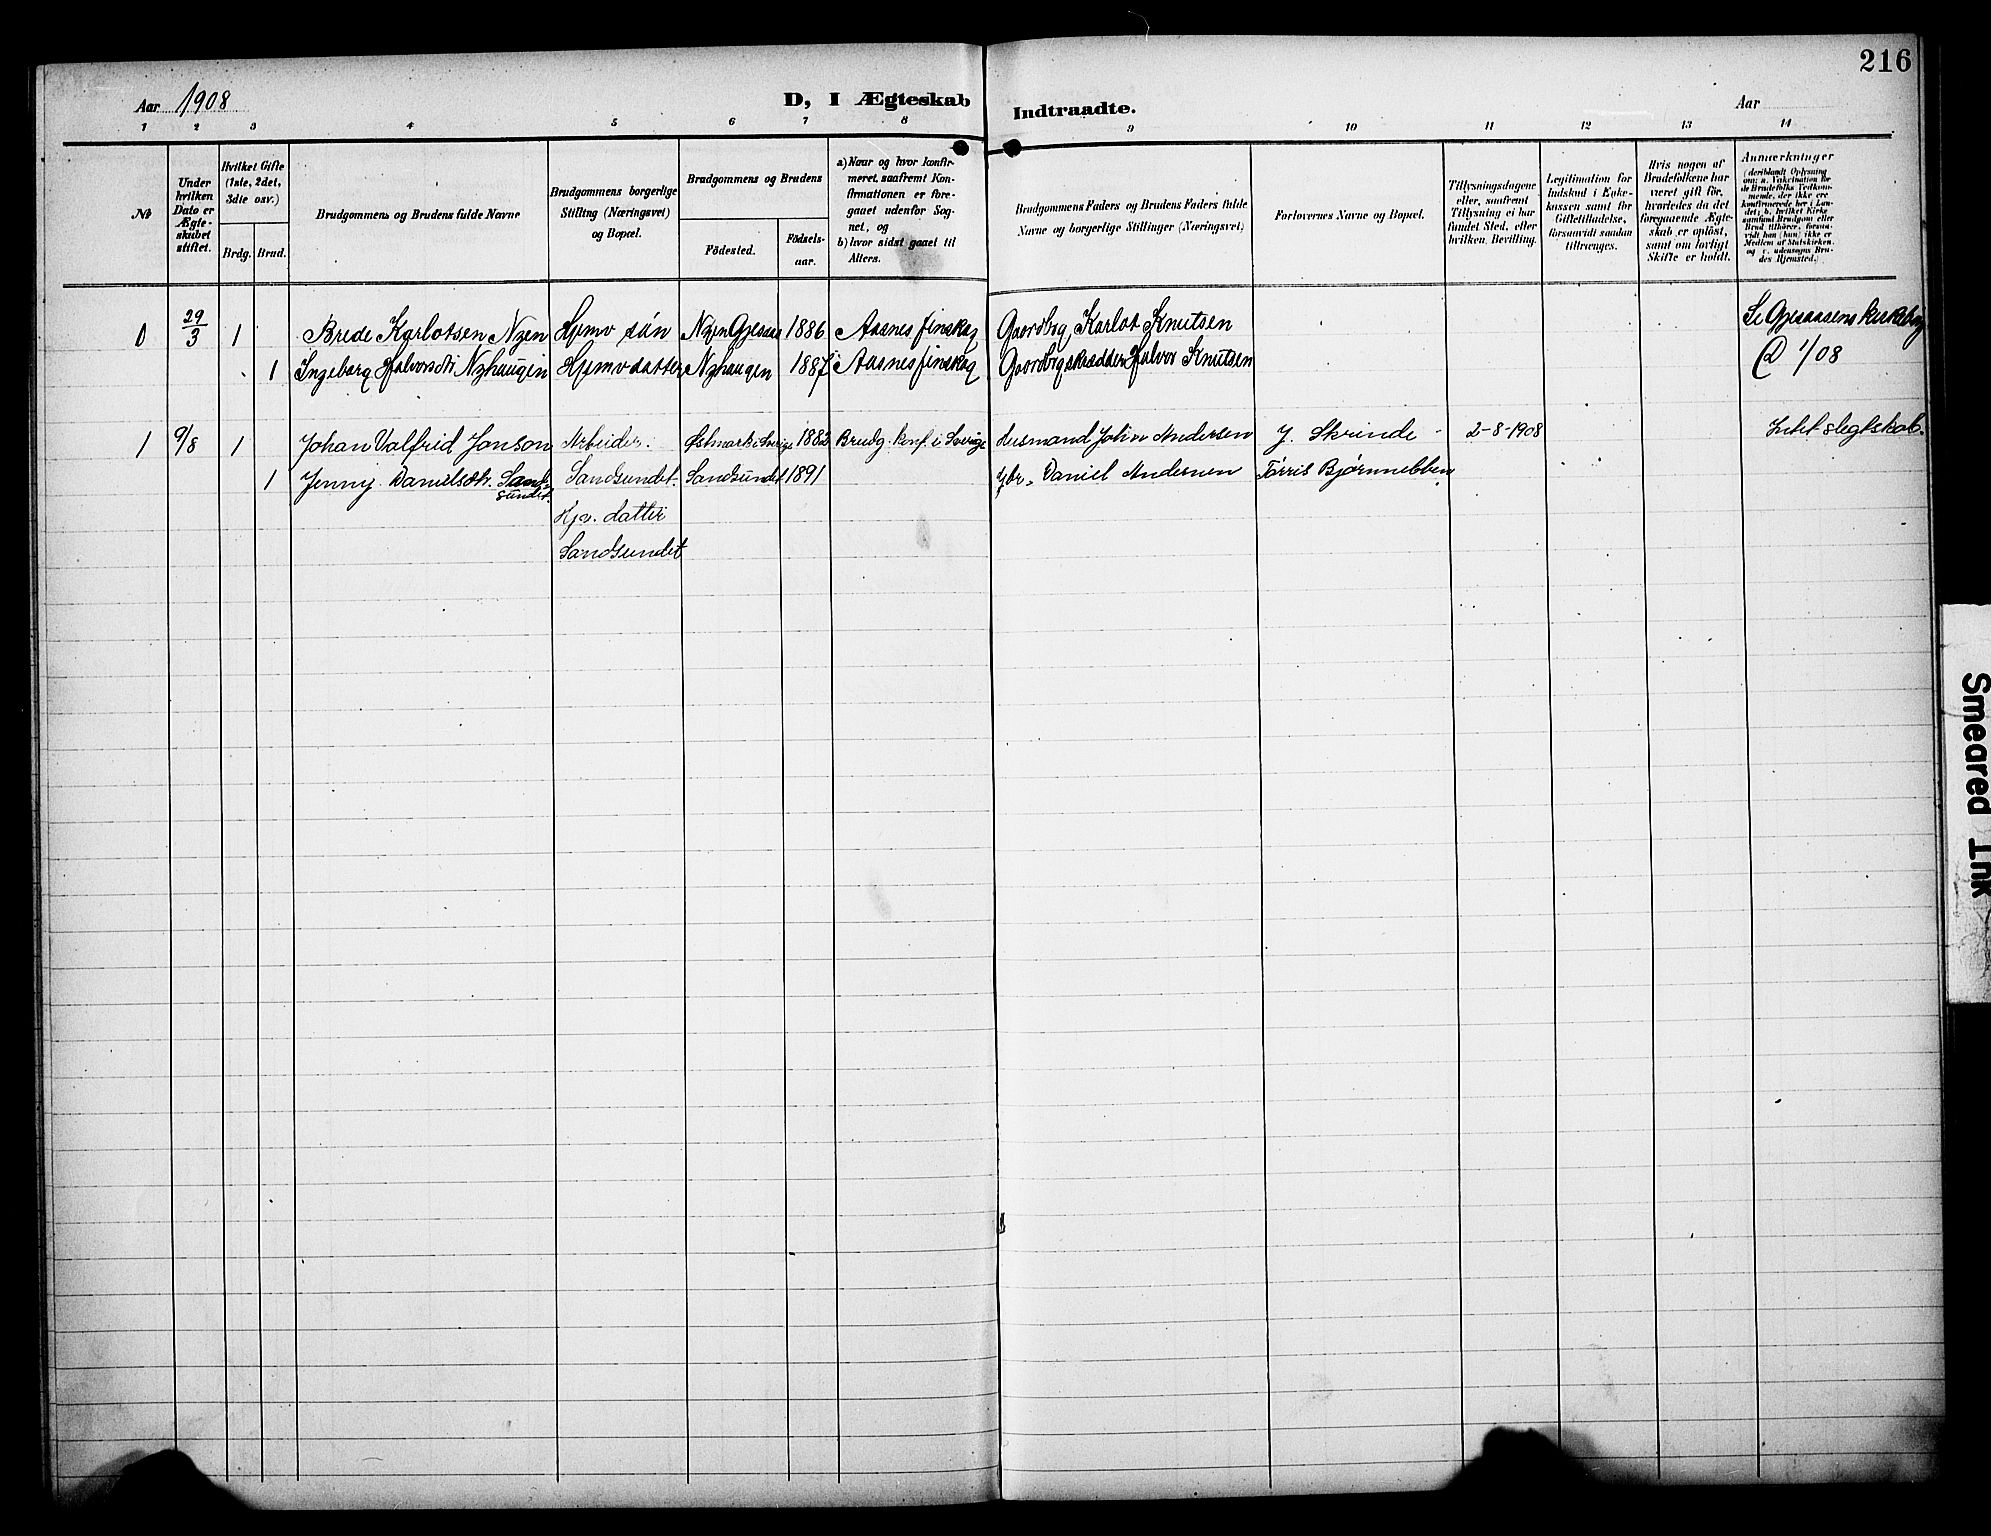 216
Aar 1908
D, I Ægteskab
Indtraadte.
Aar
1 2 3 4 5 6 7 8 9 10 11 12 13 14
№
Under hvilken Dato er Ægteskabet stiftet.
Hvilket Gifte (1ste, 2det, 3die osv.)
Brdg. Brud.
Brudgommens og Brudens fulde Navne
Brudgommens borgerlige Stilling (Næringsvei) og Bopæl.
Brudgommens og Brudens
Födested.
Födsels-aar.
a) Naar og hvor konfirmeret, saafremt Konfirmationen er foregaaet udenfor Sognet, og
b) hvor sidst gaaet til Alters.
Brudgommens Faders og Brudens Faders fulde Navne og borgerlige Stillinger (Næringsvei)
Forlovernes Navne og Bopæl.
Tillysningsdagene eller, saafremt Tillysning ei har fundet Sted, efter hvilken Bevilling.
Legitimation for Indskud i Enkekassen samt for Giftetilladelse, forsaavidt saadan tiltrænges.
Hvis nogen af Brudefolkene har været gift før, hvorledes da det foregaaende Ægteskab er opløst, samt om lovligt Skifte er holdt.
Anmærkninger (deriblandt Oplysning om: a. Vakcination for de Brudefolks Vedkommende, der ikke ere konfirmerede her i Landet; b. hvilket Kirkesamfund Brudgom eller Brud tilhører, forsaavidt han (hun) ikke er Medlem af Statskirken, og c. udensogns Brudes Hjemsted.)
0 29/3 1 Brede Karlotsen Nyen Hjemv sön Nyen Gjesaas 1886 Aasnes finskog Gaardbrg Karlot Knutsen Se Gjesaasens kirkebog
1 Ingeborg Halvorsdtr Nyhaugin Hjemv datter Nyhaugen 1887 Aasnes finskog Gaardbrg skrædder Halvor Knutsen 1/08
1 9/8 1 Johan Valfrid Janson Arbeider. Østmark i Sverige 1882 Brudg. konf. i Sverige Husmand Johan Andersen J. Skrinde 2-8-1908 Intet slegtskab.
1 Jenny Danielsdtr. Sandsundet. Sandsundet. Sandsundet 1891 Daniel Andersen Tørris Bjørnnebben
Hjv. datter
Sandsundet
Smeared Ink